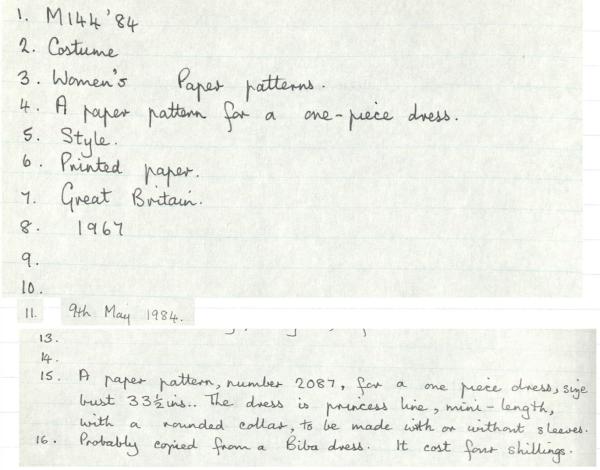 1. M144'84
2. Costume
3. Women's Paper patterns.
4. A paper pattern for a one-piece dress.
5. Style.
6. Printed paper.
7. Great Britain.
8. 1967
9.
10.
11. 9th May 1984.
13.
14.
15. A paper pattern, number 2087, for a one piece dress, size
bust 33½ins.. The dress is princess line, mini-length,
with a rounded collar, to be made with or without sleeves.
16. Probably copied from a Biba dress. It cost four shillings.